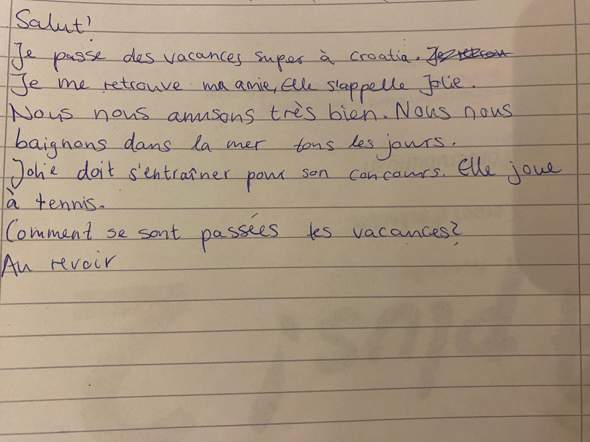 Salut!
Je passe des vacances super à croatia.
Je me retrouve ma amie, Elle s'appelle Jolie.
Nous nous amusons très bien. Nous nous
baignons dans la mer tous les jours.
Jolie doit s'entraîner pour son concours. Elle joue
à tennis.
Comment se sont passées tes vacances?
Au revoir